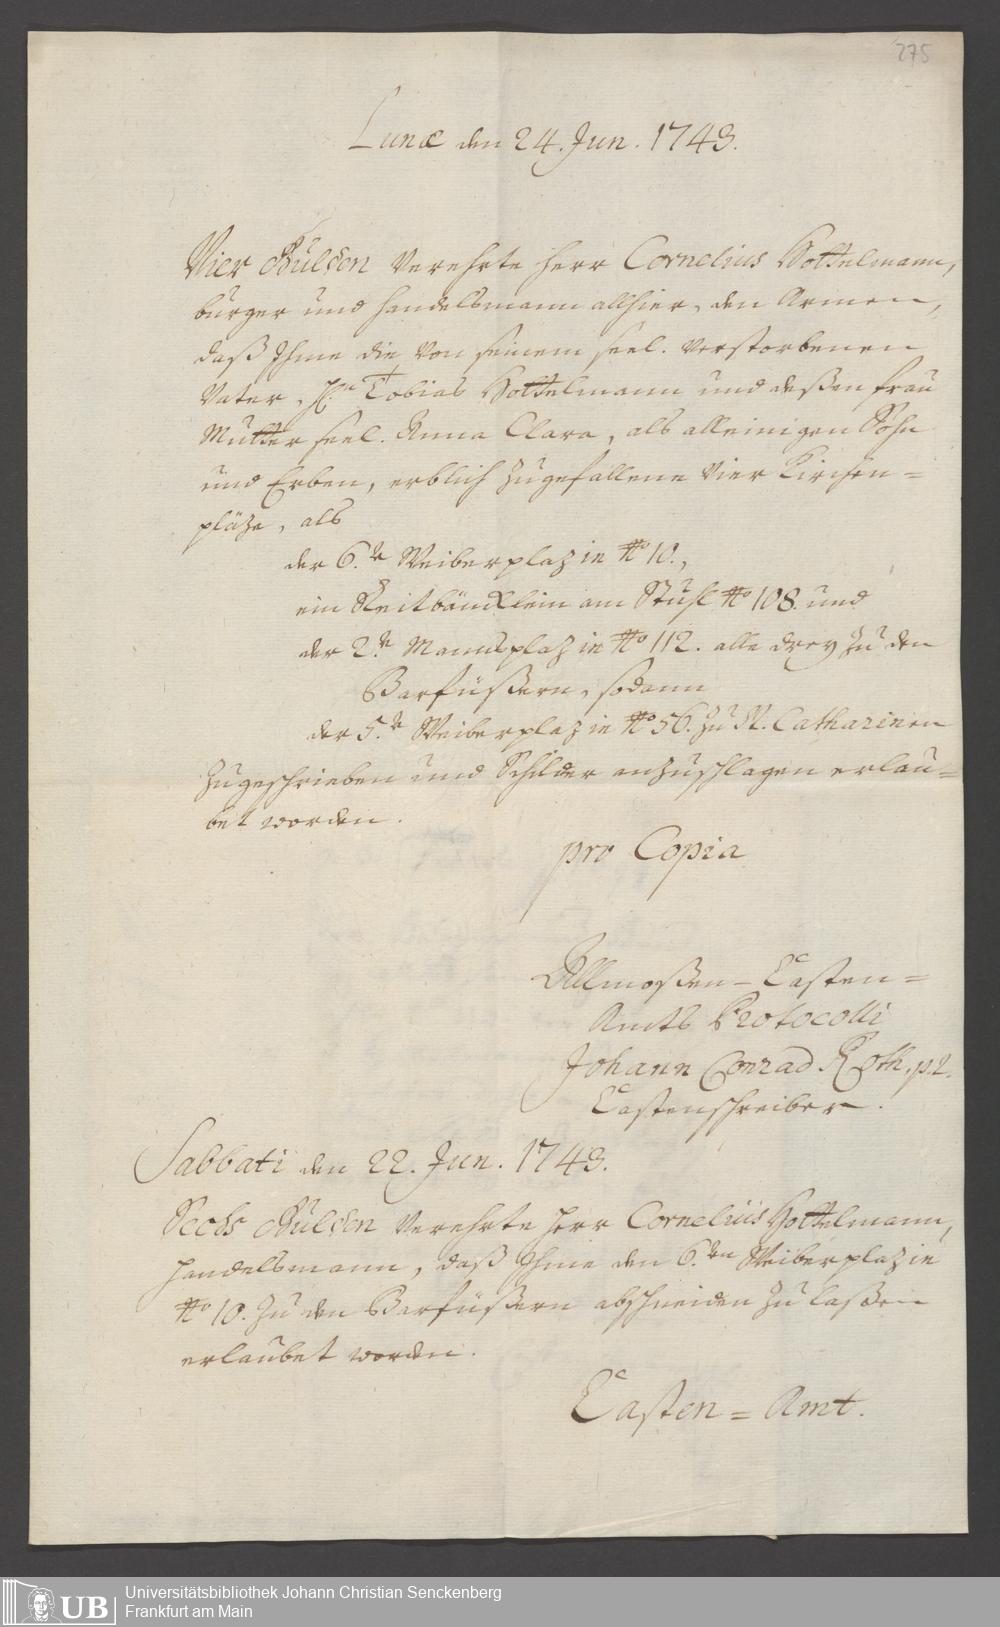 275
Lunæ den 24. Jun. 1743.
Vier Gulden verehrte Herr Cornelius Hottelmann,
burger und Handelsmann allhier, den Armen,
daß Ihme die von seinem seel. verstorbenen
Vater, H.rn Tobias Hottelmann und deßen Frau
Mutter seel. Anna Clara, als alleinigen Sohn
und Erben, erblich zugefallene vier Kirchen=
pläze, als
der 6.te Weiberplaz in No 10.,
ein Reitbäncklein am Stuhl No 108. und
der 2.te Mannsplaz in No 112. alle drey zu den
Barfüßern, sodann
der 5.te Weiberplaz in No 56. zu St. Catharinen
zugeschrieben und Schilder anzuschlagen erlau=
bet worden.
pro Copia
Allmoßen-Casten=
Amts Protocolli
Johann Conrad Roth, p.t.
Castenschreiber.
Sabbati den 22. Jun. 1743.
Sechs Gulden verehrte Herr Cornelius Hottelmann,
Handelsmann, daß Ihme den 6.ten Weiberplaz in
No 10. zu den Barfüßern abschneiden zu laßen
erlaubet worden.
Casten=Amt.
UB
Universitätsbibliothek Johann Christian Senckenberg
Frankfurt am Main